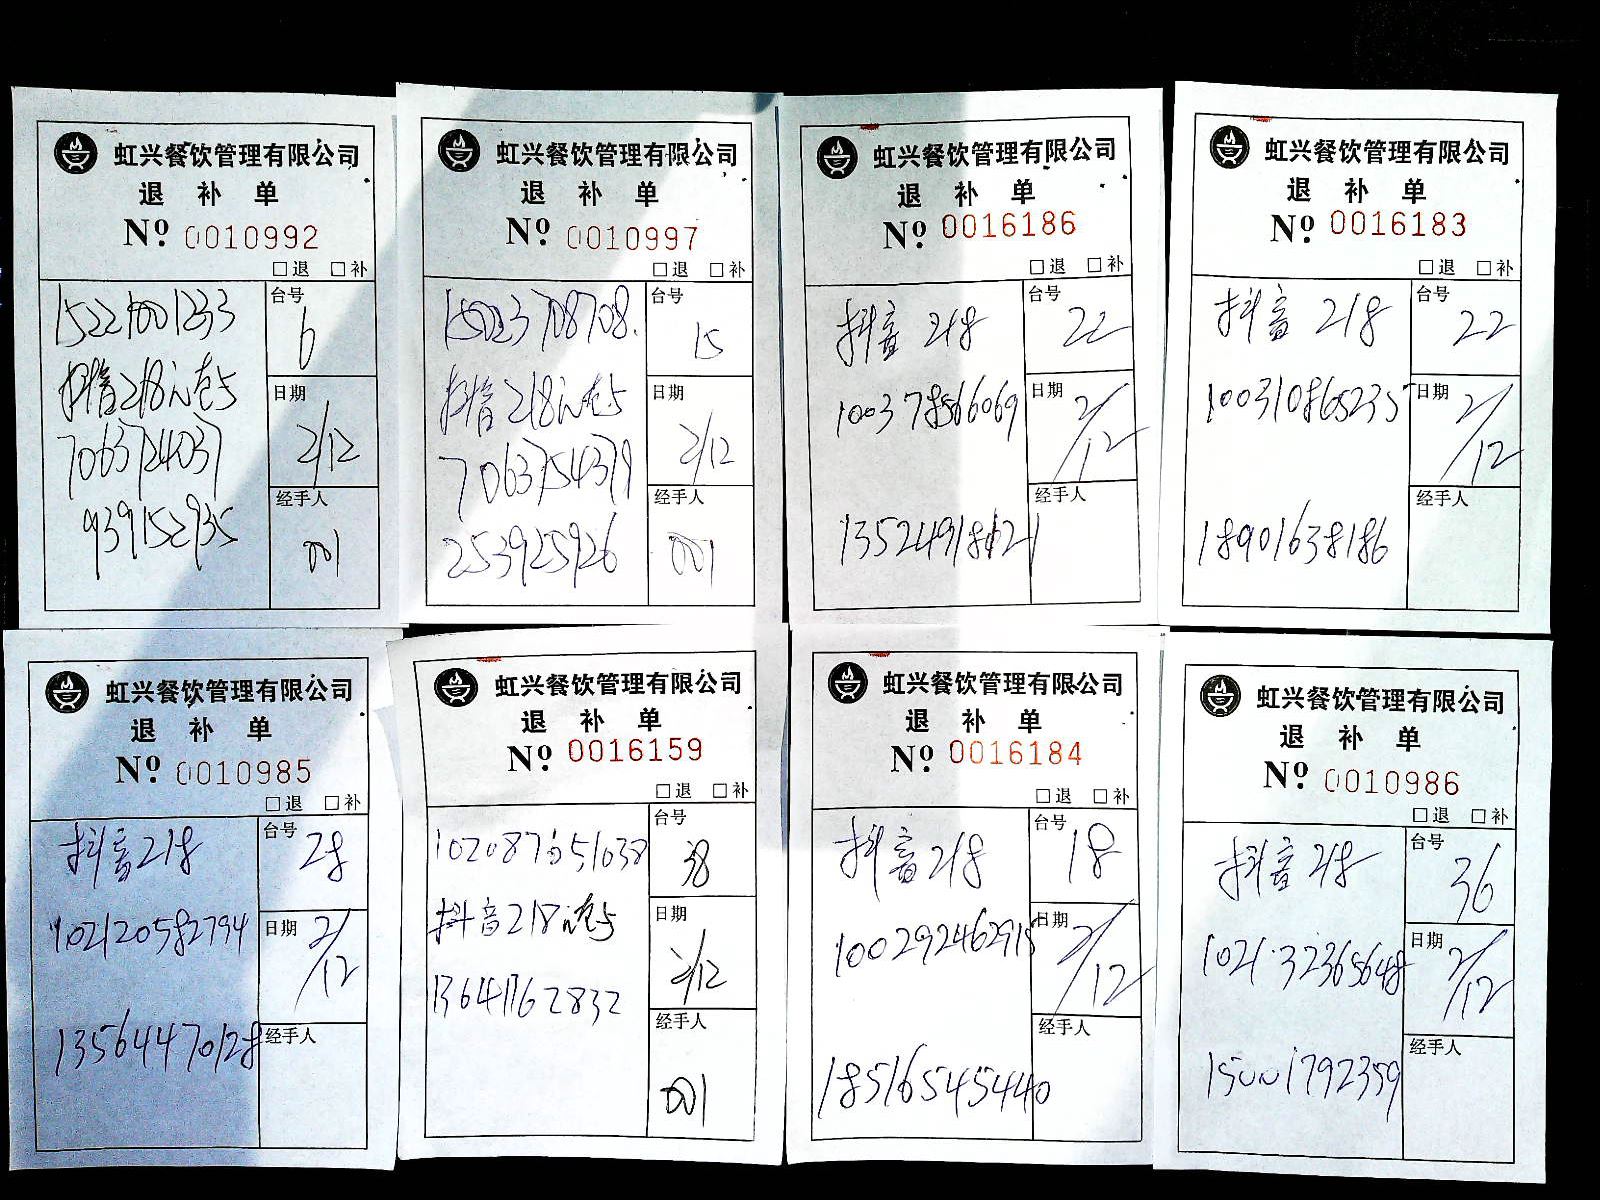 虹兴餐饮管理有限公司
退 补 单
Nº 0010992
□退 □补
台号
6
日期
2/12
经手人
001
抖音218元套
7063724037
939152935
虹兴餐饮管理有限公司
退 补 单
Nº 0010997
□退 □补
15023708708.
台号
15
抖音218元套
日期
2/12
7063754379
经手人
253925926
001
虹兴餐饮管理有限公司
退 补 单
Nº 0016186
□退 □补
抖音 218
台号
22
100378566069
日期
2/12
经手人
虹兴餐饮管理有限公司
退 补 单
Nº 0016183
□退 □补
抖音 218
台号
22
100310865235
日期
2/12
经手人
18901638186
虹兴餐饮管理有限公司
退 补 单
Nº 0010985
□退 □补
抖音218
台号
28
102120582794
日期
2/12
13564470128
经手人
虹兴餐饮管理有限公司
退 补 单
Nº 0016159
□退 □补
台号
38
抖音218元套
日期
2/12
13641762832
经手人
001
虹兴餐饮管理有限公司
退 补 单
Nº 0016184
□退 □补
抖音218
台号
18
100292462915
日期
2/12
经手人
18516545440
虹兴餐饮管理有限公司
退 补 单
Nº 0010986
□退 □补
抖音218
台号
36
102132365648
日期
2/12
经手人
15001792359